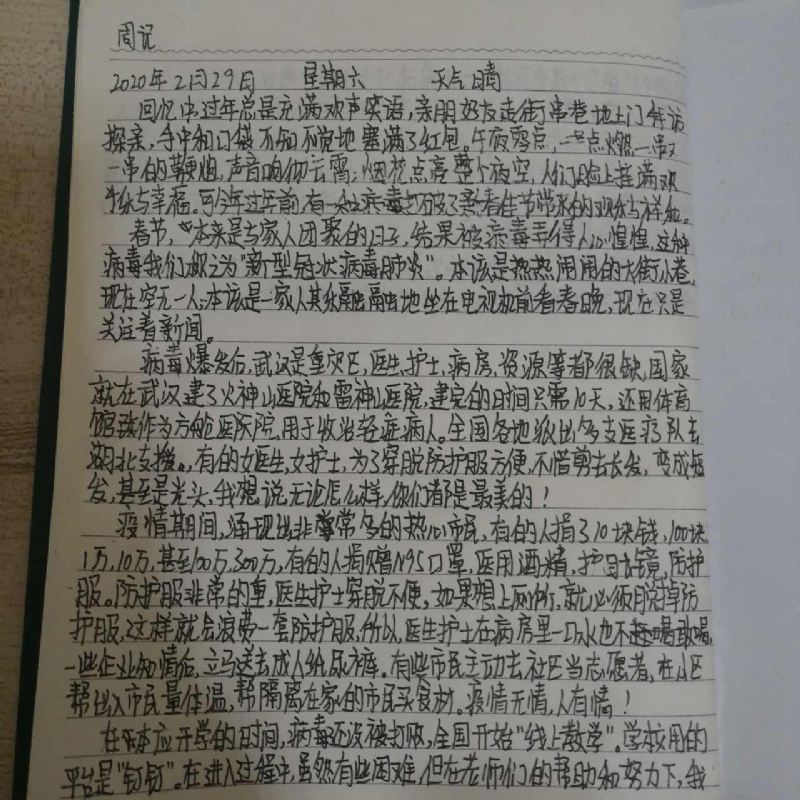 周记
2020年2月29日 星期六 天气晴
回忆中过年总是充满欢声笑语,亲朋好友走街串巷地上门拜访
探亲,手中和口袋不知不觉地塞满了红包。午夜零点,一点燃一串又
一串的鞭炮,声音响彻云霄;烟花点亮整个夜空,人们脸上挂满欢
乐与幸福。可今年过年前,有一种病毒打破了新春佳节带来的欢乐与祥和。
春节,本来是与家人团聚的日子,结果被病毒弄得人心惶惶,这种
病毒我们称之为"新型冠状病毒肺炎"。本该是热热闹闹的大街小巷,
现在空无一人;本该是一家人其乐融融地坐在电视机前看春晚,现在只是
关注着新闻。
病毒爆发后,武汉是重灾区,医生,护士,病房,资源等都很缺,国家
就在武汉建了火神山医院和雷神山医院,建完的时间只需10天,还用体育
馆作为方舱医院,用于收治轻症病人。全国各地派出多支医疗队去
湖北支援。有的女医生,女护士,为了穿脱防护服方便,不惜剪去长发,变成短
发,甚至是光头,我想说无论怎么样,你们都是最美的!
疫情期间,涌现出非常多的热心市民,有的人捐了10块钱,100块,
1万,10万,甚至100万,300万,有的人捐赠N95口罩,医用酒精,护目镜,防护
服。防护服非常的重,医生护士穿脱不便,如果想上厕所,就必须脱掉防
护服,这样就会浪费一套防护服,所以,医生护士在病房里一口水也不敢喝,
一些企业知情后,立马送去成人纸尿裤。有些市民主动去社区当志愿者,在小区
帮出入市民量体温,帮隔离在家的市民买食材。疫情无情,人有情!
在本应开学的日时间,病毒还没被打败,全国开始"线上教学"。学校用的
平台是"钉钉"。在进入过程中,虽然有些困难,但在老师们的帮助和努力下,我